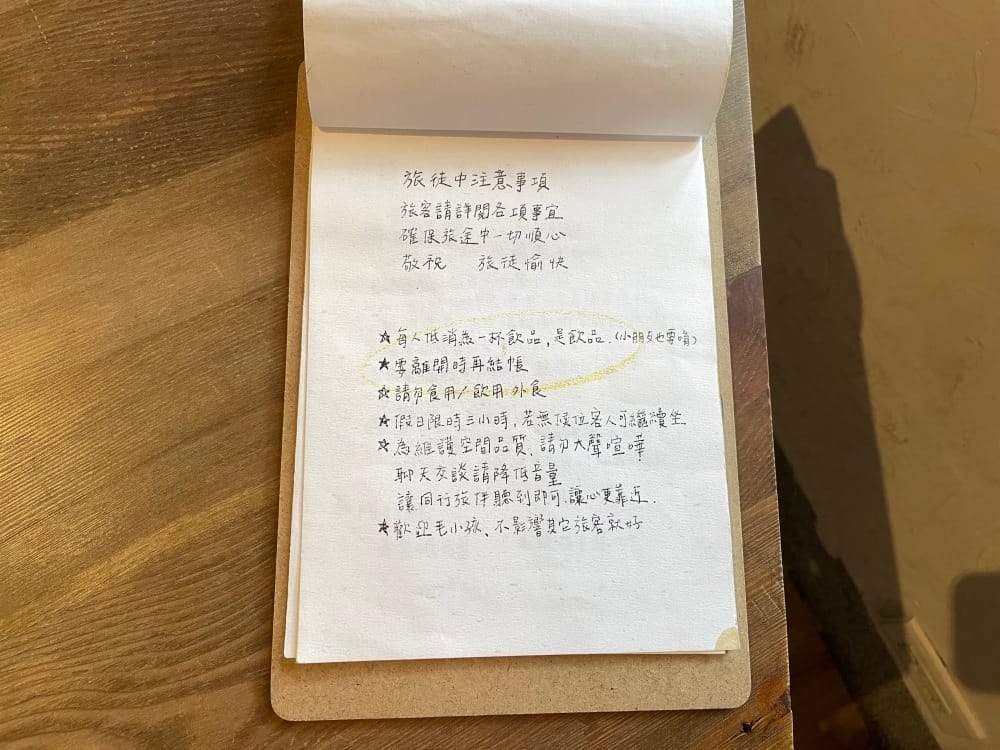 旅徒中注意事項
旅客請詳閱各項事宜
確保旅途中一切順心
敬祝 旅徒愉快
★每人低消為一杯飲品,是飲品.(小朋友也要唷)
★要離開時再結帳
★請勿食用/飲用 外食
★假日限時三小時,若無候位客人可繼續坐
★為維護空間品質、請勿大聲喧嘩
聊天交談請降低音量
讓同行旅伴聽到即可,讓心更靠近.
★歡迎毛小孩、不影響其它旅客就好